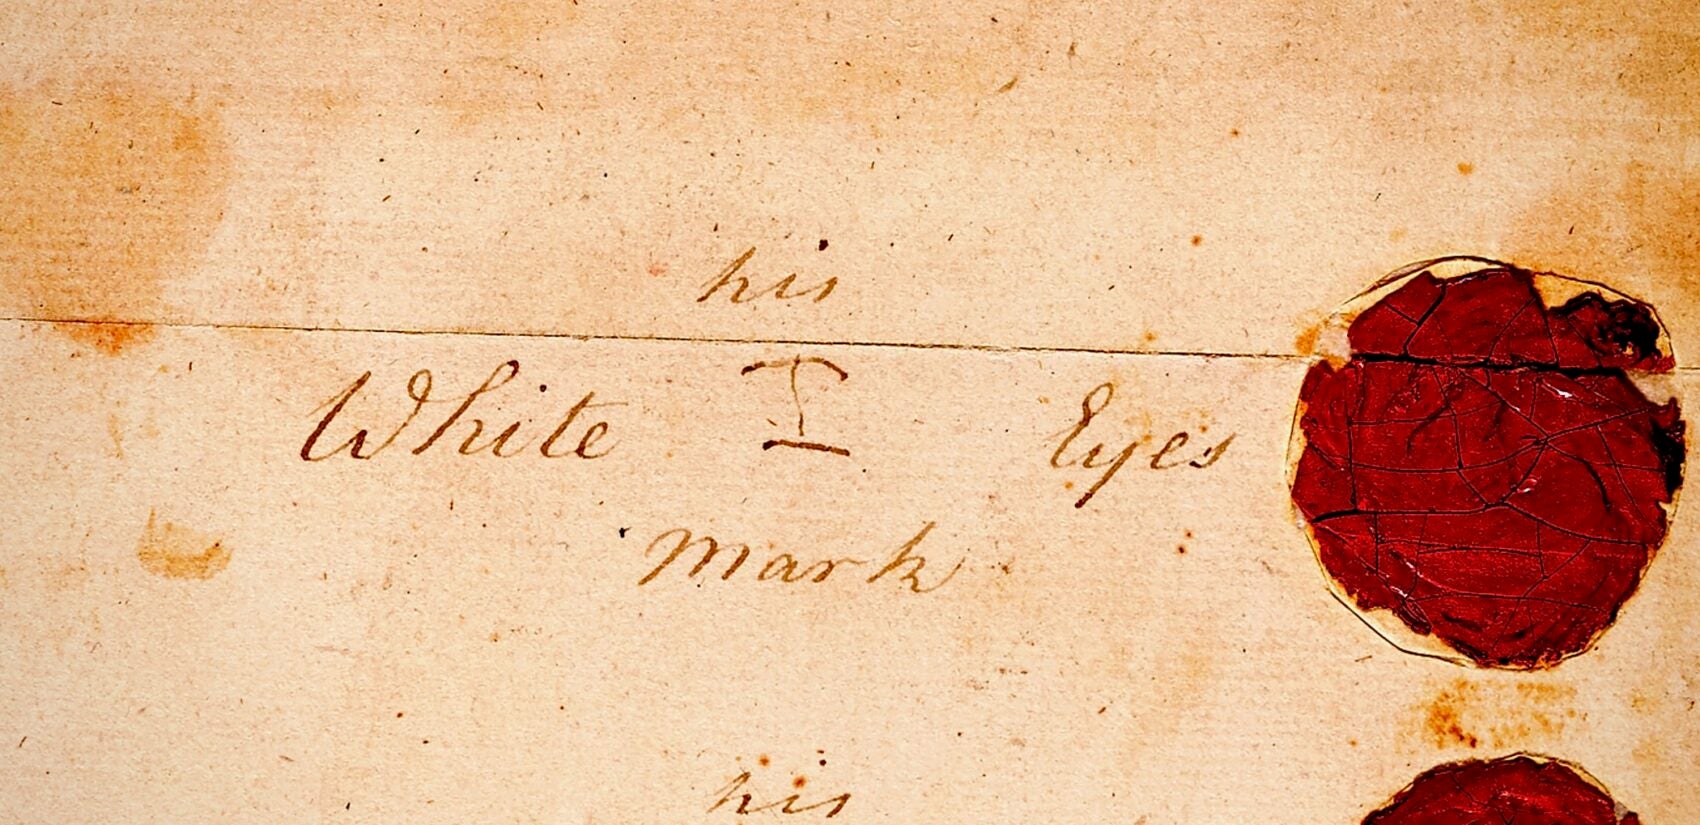 his
White Eyes
mark
his